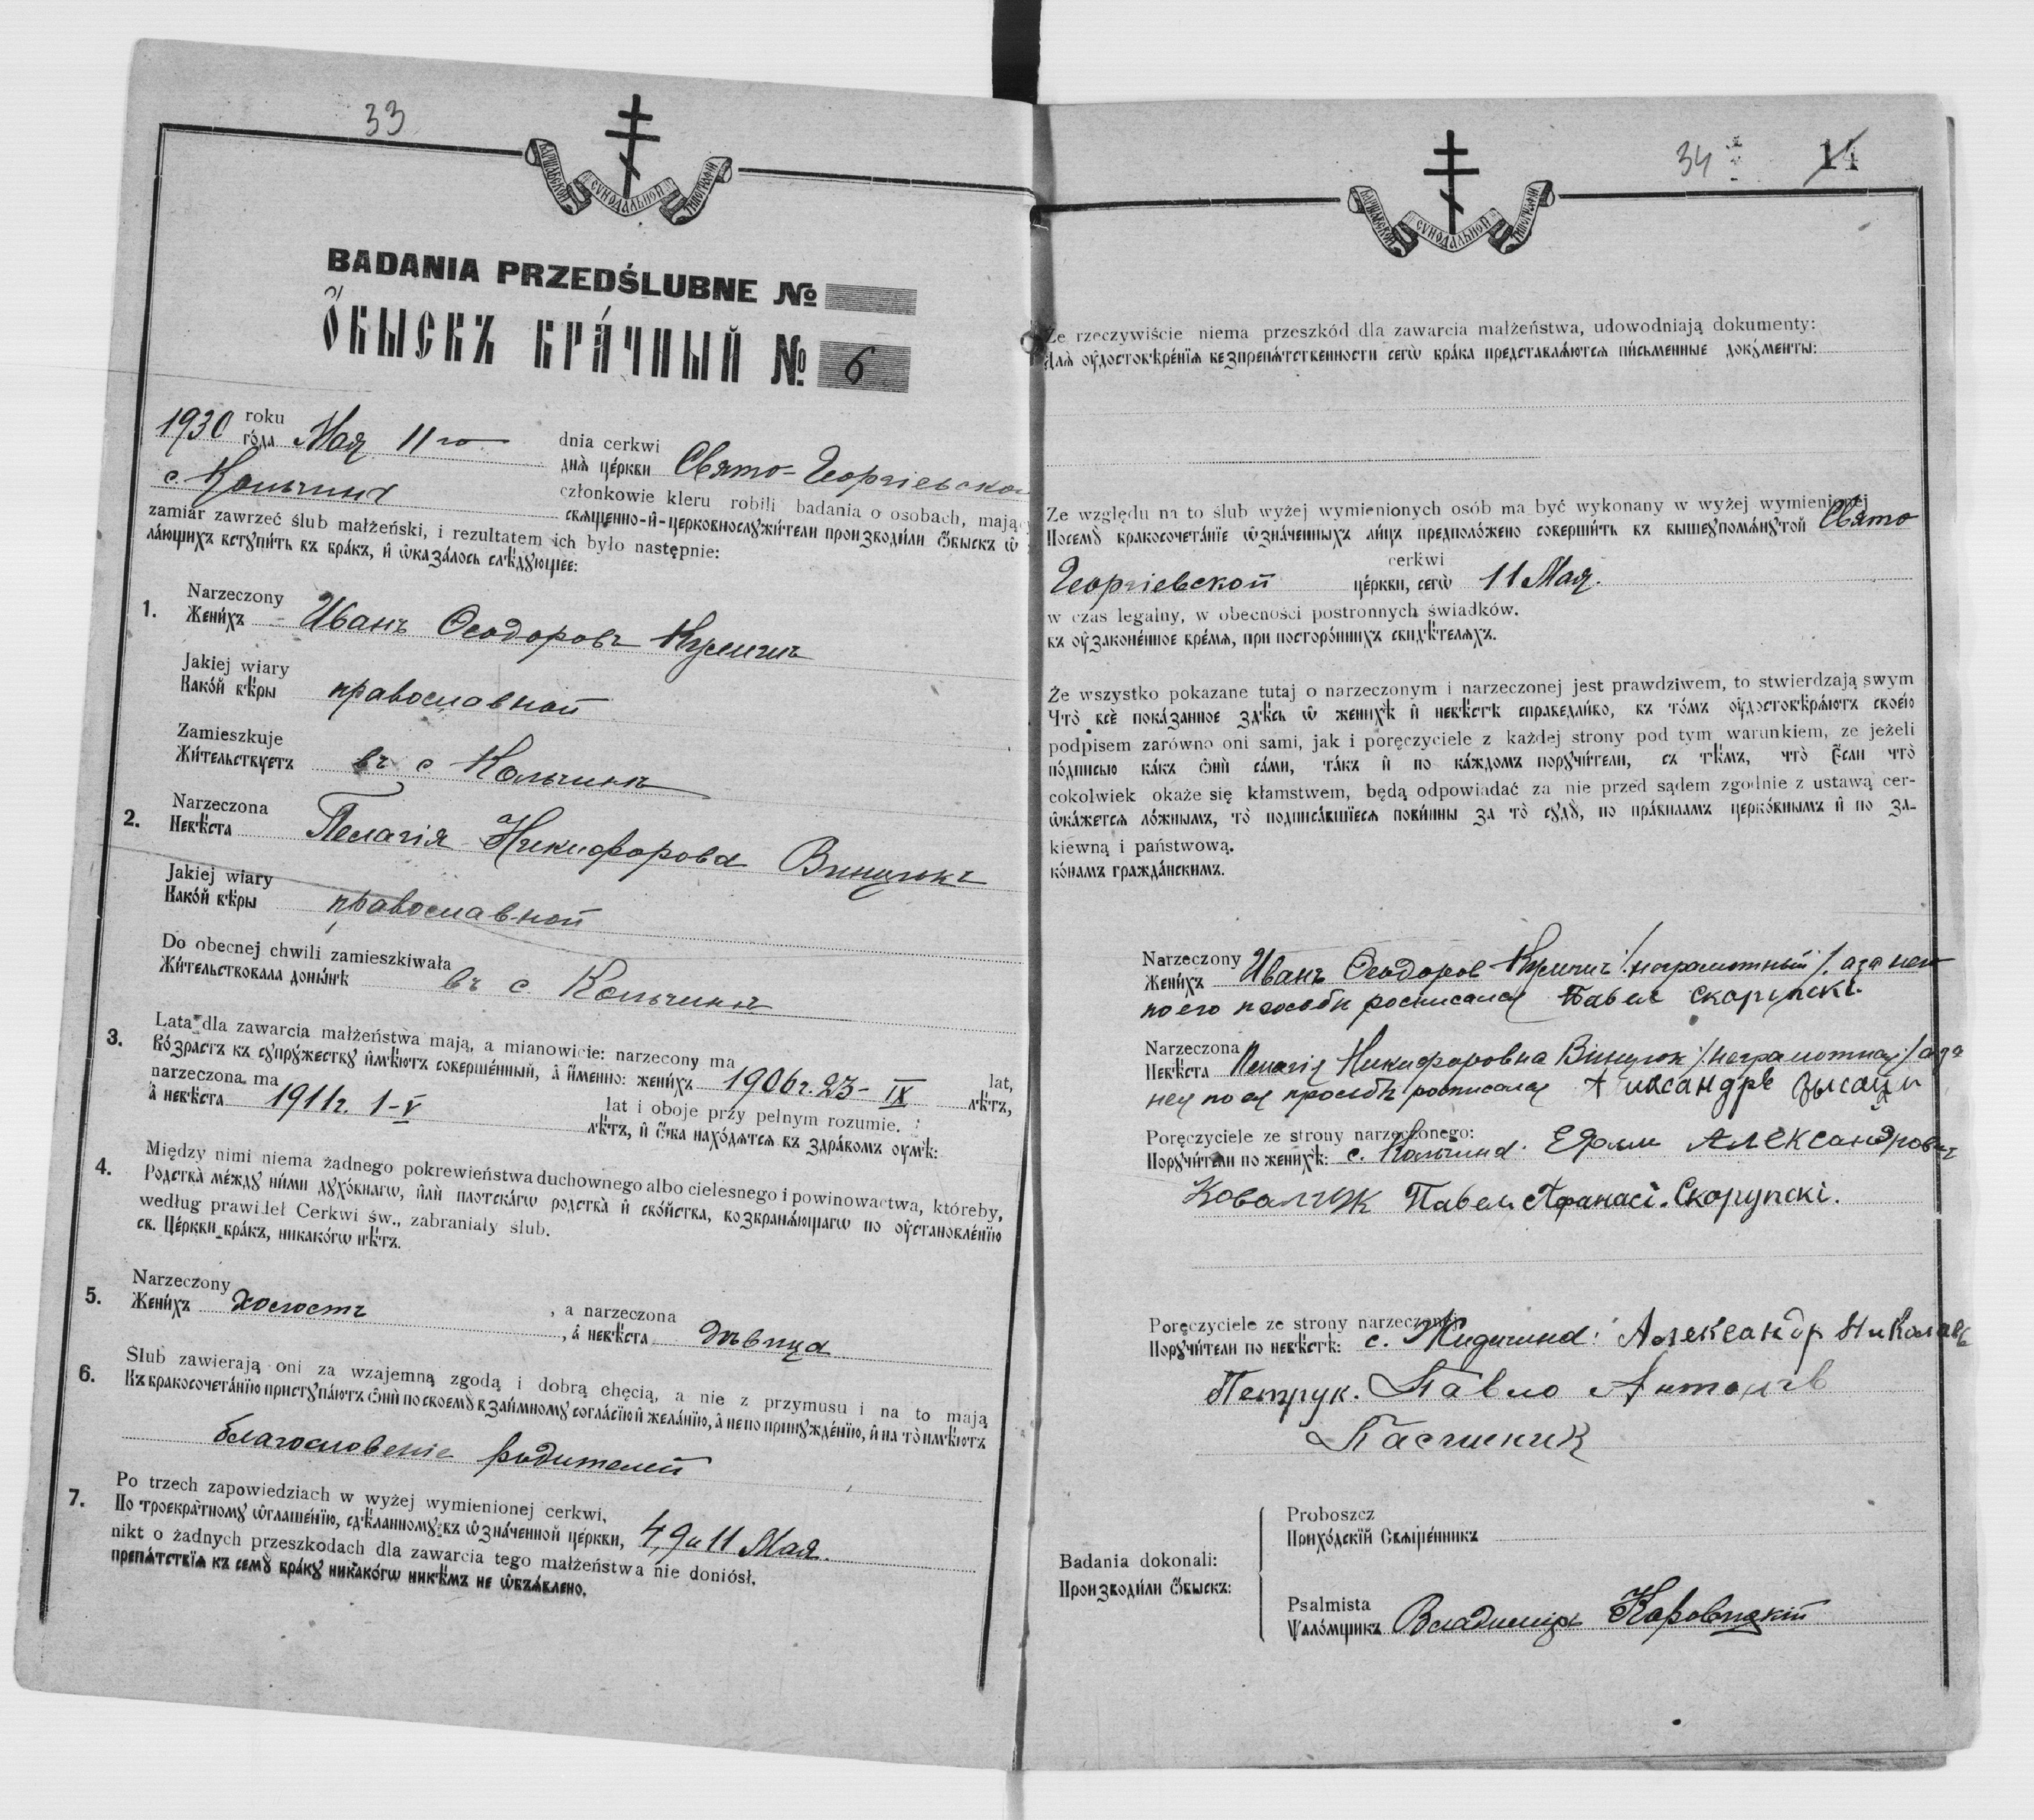 33
ВАРШАВСКОЙ СѴНОДАЛЬНОЙ ТИПОГРАФІИ
BADANIA PRZEDŚLUBNE №
Ѻ҆БЫСКЪ БРА́ЧНЫЙ № 6
1930 roku
го́да Мая 11го dnia cerkwi
днѧ̀ це́ркви Свято-Георгіевской
с. Кольчинъ członkowie kleru robili badania o osobach, mając
сщ҃енно-и҆-церковнослꙋжи́тели производи́ли Ѻ҆быскъ ѡ҆
zamiar zawrzeć ślub małżeński, i rezultatem ich było następnie:
ла́ющихъ вступи́ть въ бра́къ, и҆ ѡ҆каза́лось слѣ́дꙋющее:
1. Narzeczony
Жени́хъ Иванъ Ѳеодоровъ
Jakiej wiary
Како́й вѣ́ры православной
Zamieszkuje
Жи́тельствꙋетъ въ с. Кольчинъ
2. Narzeczona
Невѣ́ста Пелагія Никифорова Винцюкъ
Jakiej wiary
Како́й вѣ́ры православной
Do obecnej chwili zamieszkiwała
Жи́тельствовала доны́нѣ въ с. Кольчинъ
3. Lata dla zawarcia małżeństwa mają, a mianowicie: narzecony ma
Во́зрастъ къ сꙋпрꙋ́жествꙋ и҆мѣ́ютъ соверше́нный, а҆ и҆́менно: жени́хъ 1906г. 23-IX lat,
лѣ́тъ,
narzeczona ma
а҆ невѣ́ста 1911г. 1-V lat i oboje przy pełnym rozumie.
лѣ́тъ, и҆ Ѻ҆́ба нахо́дѧтсѧ въ здра́вомъ оумѣ̀:
4. Między nimi niema żadnego pokrewieństwa duchownego albo cielesnego i powinowactwa, któreby,
Родства̀ ме́ждꙋ ни́ми дꙋхо́внагѡ, и҆лѝ плотска́гѡ родства̀ и҆ сво́йства, возбранѧ́ющагѡ по оу҆становле́нїю
według prawideł Cerkwi św., zabraniały ślub.
св. Це́ркви бра́къ, никако́гѡ нѣ́тъ.
5. Narzeczony
Жени́хъ холостъ , a narzeczona
, а҆ невѣ́ста дѣвица
6. Ślub zawierają oni za wzajemną zgodą i dobrą chęcią, a nie z przymusu i na to mają
Къ бракосочета́нїю пристꙋпа́ютъ Ѻ҆нѝ по своемꙋ̀ взаи́мномꙋ согла́сїю и҆ жела́нїю, а҆ не по принꙋжде́нїю, и҆ на то̀ и҆мѣ́ютъ
благословеніе родителей
7. Po trzech zapowiedziach w wyżej wymienionej cerkwi,
По троекра́тномꙋ ѡ҆глаше́нїю, сдѣ́ланномꙋ въ ѡ҆зна́ченной це́ркви, 4, 9 и 11 Мая.
nikt o żadnych przeszkodach dla zawarcia tego małżeństwa nie doniósł.
препѧ́тствїѧ къ семꙋ̀ бра́кꙋ никако́гѡ никѣ́мъ не ѡ҆бъѧ́влено.
34 14
ВАРШАВСКОЙ СѴНОДАЛЬНОЙ ТИПОГРАФІИ
Że rzeczywiście niema przeszkód dla zawarcia małżeństwa, udowodniają dokumenty:
Длѧ̀ оу҆достовѣре́нїѧ безпрепѧ́тственности сегѡ̀ бра́ка представлѧ́ютсѧ пи́сьменные докꙋме́нты:
Ze względu na to ślub wyżej wymienionych osób ma być wykonany w wyżej wymienionej
Посемꙋ̀ бракосочета́нїе ѡ҆зна́ченныхъ ли́цъ предполо́жено соверши́ть въ вышеꙋпомѧ́нꙋтой Свято
Георгіевской cerkwi
це́ркви, сегѡ̀ 11 Мая.
w czas legalny, w obecności postronnych świadków.
въ оу҆законе́нное вре́мѧ, при посторо́ннихъ свидѣ́телѧхъ.
Że wszystko pokazane tutaj o narzeczonym i narzeczonej jest prawdziwem, to stwierdzają swym
Что̀ всѐ пока́занное здѣ́сь ѡ҆ женихѣ̀ и҆ невѣ́стѣ справедли́во, въ то́мъ оу҆достовѣрѧ́ютъ свое́ю
podpisem zarówno oni sami, jak i poręczyciele z każdej strony pod tym warunkiem, ze jeżeli
по́дписью ка́къ Ѻ҆нѝ са́ми, та́къ и҆ по ка́ждомъ порꙋчи́тели, съ тѣ́мъ, что̀ є҆́сли что̀
cokolwiek okaże się kłamstwem, będą odpowiadać za nie przed sądem zgodnie z ustawą cer-
ѡ҆ка́жетсѧ ло́жнымъ, то̀ подписа́вшїесѧ пови́нны за то̀ сꙋдꙋ̀, по пра́виламъ церко́внымъ и҆ по за-
kiewną i państwową.
ко́намъ гражда́нскимъ.
Narzeczony
Жени́хъ Иванъ Ѳеодоров /:неграмотный:/ а за него
по его просьбѣ росписался Павел Скорупскі.
Narzeczona
Невѣ́ста Пелагія Никифоровна Винцюк /:неграмотная:/ а за
нея по ея просьбѣ росписался
Poręczyciele ze strony narzeczonego:
Порꙋчи́тели по женихѣ̀: с. Кольчина: Ефим Александрович
Ковальчук Павел Афанасі. Скорупскі.
Poręczyciele ze strony narzeczonej:
Порꙋчи́тели по невѣ́стѣ: с. Жидичина: Александр Николаев
Петрук. Павло Антонов
Пасічник
Badania dokonali:
Производи́ли Ѻ҆́быскъ:
Proboszcz
Прихо́дскїй Свѧще́нникъ
Psalmista
Ѱало́мщикъ Владиміръ Каровицкій